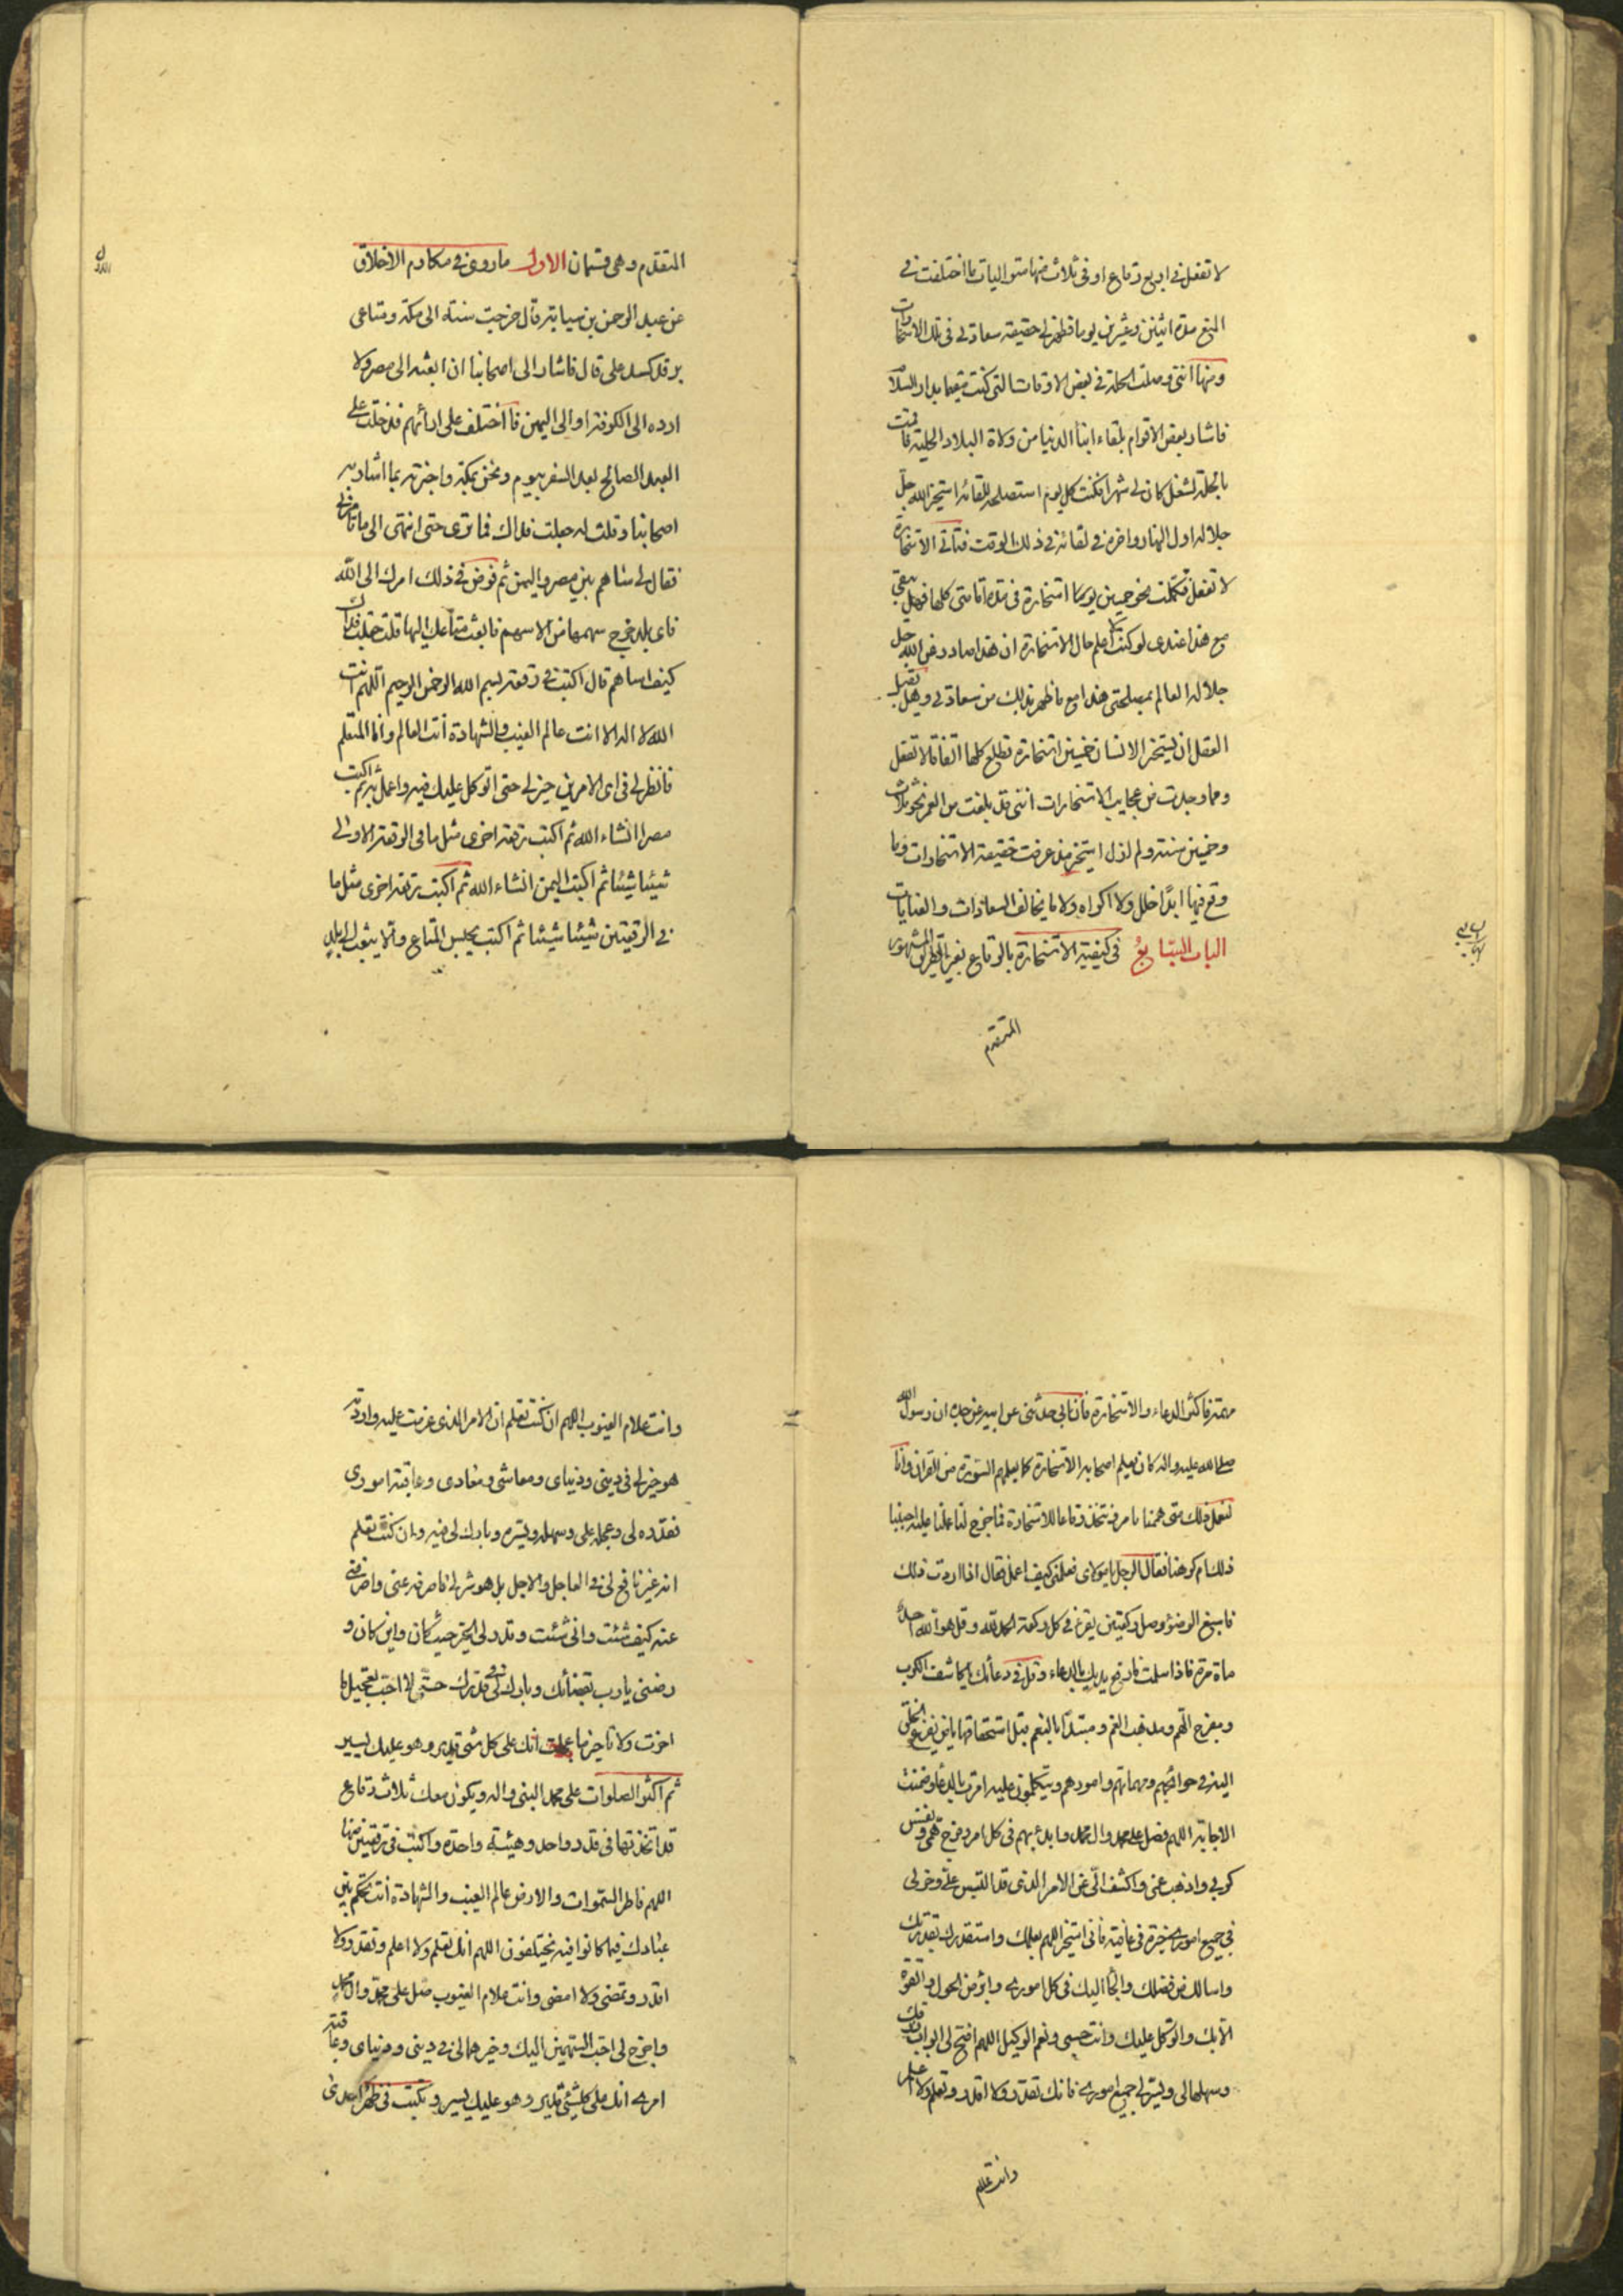 لا تفعل في اربع رقاع او في ثلاث منها متواليات ما اختلفت في
المنع مدة اثنين وعشرين يوما فظهر لي حقيقة سعادتي في تلك الاستخارات
ومنها انني وصلت الحلة في بعض الاوقات التي كنت مقيما بدار السلام
فاشار بعض الاقوام بلقاء ابناء الدنيا من ولاة البلاد الحلية فاقمت
بالحلة لشغل كان لي شهرا فكنت كل يوم استصلحه للقائه استخير الله جل
جلاله اول النهار واخره في لقائه في ذلك الوقت فتاتي الاستخارة
لا تفعل فتكملت نحو خمسين يوما استخارة في مدة اقامتي كلها فهل يبقي
مع هذا عندي لو كنت لا اعلم حال الاستخارة ان هذا صادر عن الله جل
جلاله العالم بمصلحتي هذا مع ما ظهر بذلك من سعادتي وهل يقبل
العقل ان يستخير الانسان خمسين استخارة تطلع كلها اتفاقا لا تفعل
ومما وجدت من عجايب الاستخارات انني قد بلغت من العمر نحو ثلاث
وخمسين سنة ولم ازل استخير مذ عرفت حقيقة الاستخارات وما
وقع فيها ابدا خلل ولا اكراه ولا ما يخالف السعادات والعنايات
الباب السابع في كيفية الاستخارة بالرقاع بغير الطريق المشهور
المتقدم
المتقدم وهي قسمان الاول ما روى في مكارم الاخلاق
عن عبد الرحمن بن سيابة قال خرجت سنة الى مكة ومتاعي
بز قد كسد على قال فاشار الى اصحابنا ان ابعثه الى مصر ولا
ارده الى الكوفة او الى اليمن فاختلف على ارائهم فدخلت على
العبد الصالح بعد النفر بيوم ونحن بمكة واخبرته بما اشار به
اصحابنا وقلت له جعلت فداك فما ترى حتى انتهى الى ما تامرني
فقال لي ساهم بين مصر واليمن ثم فوض في ذلك امرك الى الله
فاى بلد خرج سهمها من الاسهم فابعث متاعك اليها قلت جعلت فداك
كيف اساهم قال اكتب في رقعة بسم الله الرحمن الرحيم اللهم انت
الله لا اله الا انت عالم الغيب والشهادة انت العالم وانا المتعلم
فانظر لي في اي الامرين خير لي حتى اتوكل عليك فيه واعمل به ثم اكتب
مصرا انشاء الله ثم اكتب رقعة اخرى مثل ما في الرقعة الاولى
شيئا شيئا ثم اكتب اليمن انشاء الله ثم اكتب رقعة اخرى مثل ما
في الرقعتين شيئا شيئا ثم اكتب يحبس المتاع ولا يبعث الى بلد
مهمة فاكثر الدعاء والاستخارة فان ابي حدثني عن ابيه عن جده ان رسول الله
صلى الله عليه واله كان يعلم اصحابه الاستخارة كما يعلمهم السورة من القران وانا
لنعمل ذلك متى هممنا بامر ونتخذ رقاعا للاستخارة فما خرج لنا عملنا عليه احببنا
ذلك ام كرهنا فقال الرجل يا مولاي فعلمني كيف اعمل فقال اذا اردت ذلك
فاسبغ الوضوء وصل ركعتين يقرء في كل ركعة الحمد لله وقل هو الله احد
ماة مرة فاذا سلمت فارفع يديك بالدعاء وقل في دعائك يا كاشف الكرب
ومفرج الهم ومذهب الغم ومبتدئا بالنعم قبل استحقاقها يا من يفزع الخلق
اليه في حوائجهم ومهماتهم وامورهم ويتكلون عليه امرت بالدعاء وضمنت
الاجابة اللهم فصل على محمد وال محمد وابدء بهم في كل امر وفرج همي ونفس
كربي واذهب غمي واكشف لي عن الامر الذي قد التبس علي وخر لي
في جميع اموري خيرة في عافية فاني استخيرك اللهم بعلمك واستقدرك بقدرتك
واسالك من فضلك والجأ اليك في كل اموري وابرء من الحول والقوة
الا بك واتوكل عليك وانت حسبي ونعم الوكيل اللهم افتح لي ابواب رزقك
وسهلها لي ويسر لي جميع اموري فانك تقدر ولا اقدر وتعلم ولا اعلم
وانت علام
وانت علام الغيوب اللهم ان كنت تعلم ان الامر الذي عزمت عليه واردته
هو خير لي في ديني ودنياي ومعاشي ومعادي وعاقبة اموري
فقدره لي وعجله علي وسهله ويسره وبارك لي فيه وان كنت تعلم
انه غير نافع لي في العاجل والاجل بل هو شر لي فاصرفه عني واصرفني
عنه كيف شئت وانى شئت وقدر لي الخير حيث كان واين كان و
رضني يا رب بقضائك وبارك لي في قدرك حتى لا احب تعجيل ما
اخرت ولا تاخير ما عجلت انك على كل شئ قدير وهو عليك يسير
ثم اكثر الصلوات على محمد النبي واله ويكون معك ثلاث رقاع
قد اتخذتها في قدر واحد وهيئة واحدة واكتب في رقعتين منها
اللهم فاطر السموات والارض عالم الغيب والشهادة انت تحكم بين
عبادك فيما كانوا فيه يختلفون اللهم انك تعلم ولا اعلم وتقدر ولا
اقدر وتمضي ولا امضي وانت علام الغيوب صل على محمد وال محمد
واخرج لي احب السهمين اليك وخيرهما لي في ديني ودنياي وعاقبة
امري انك على كل شئ قدير وهو عليك يسير وتكتب في ظهر احدى